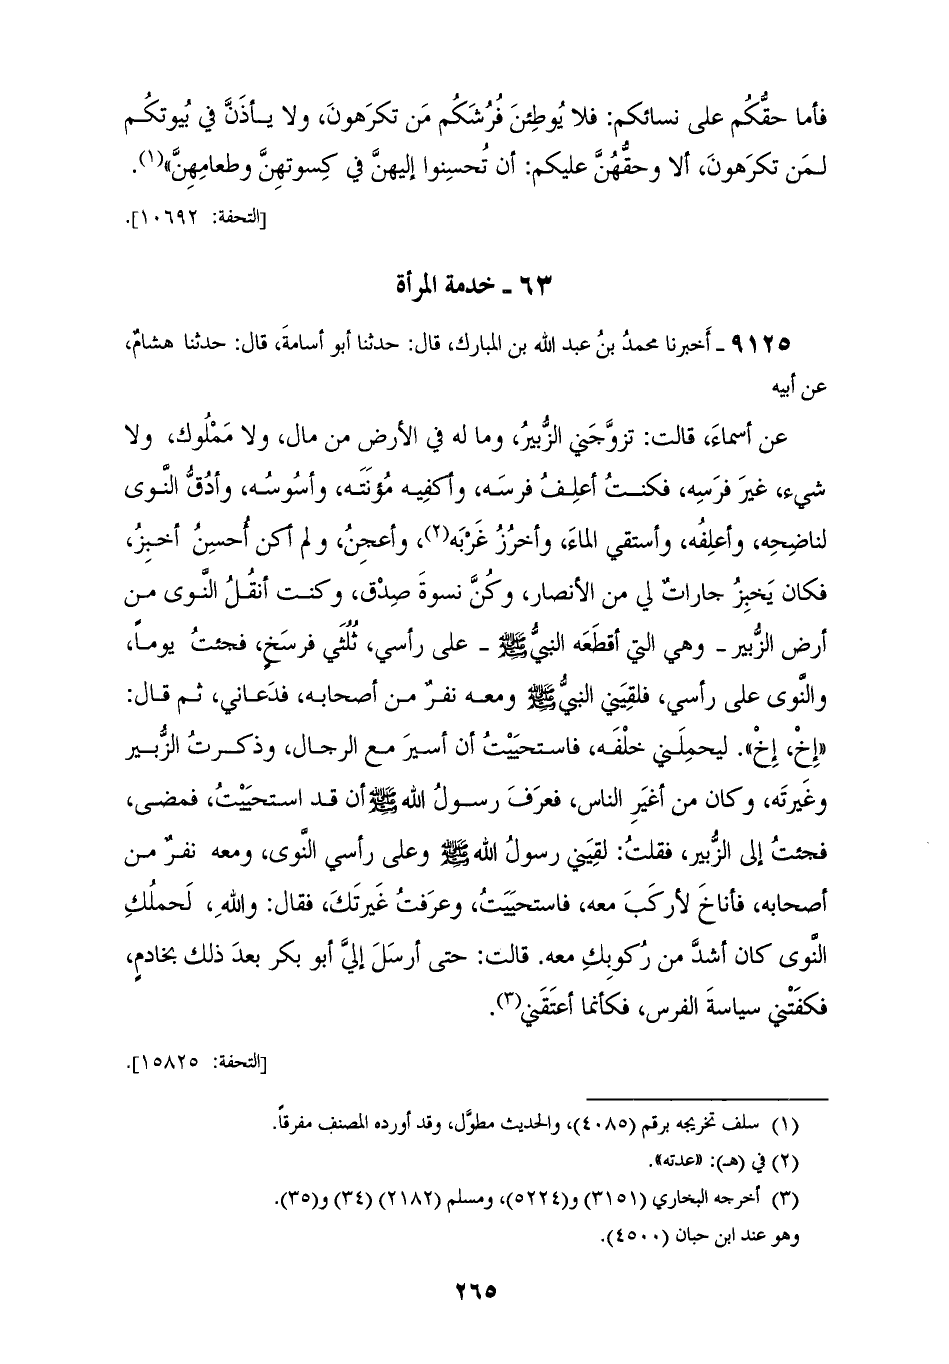 فأما حقُّكُم على نسائكم: فلا يُوطِئنَ فُرُشَكُم مَن تكرَهونَ، ولا يـأذَنَّ في بُيوتكُـم
لـمَن تكرَهونَ، ألا وحقُّهُنَّ عليكم: أن تُحسِنوا إليهنَّ في كِسوتهِنَّ وطعامِهِنَّ»(١).
[التحفة: ١٠٦٩٢].
٦٣ ـ خدمة المرأة
٩١٢٥ ـ أَخبرنا محمدُ بنُ عبد الله بن المبارك، قال: حدثنا أبو أسامةَ، قال: حدثنا هشامٌ،
عن أبيه
عن أسماءَ، قالت: تزوَّجَني الزُّبيرُ، وما له في الأرض من مال، ولا مَمْلُوك، ولا
شيء، غيرَ فرَسِه، فكنـتُ أعلِـفُ فرسَـه، وأكفِيـه مُؤنَتَـه، وأسُوسُـه، وأدُقُّ النَّـوى
لناضِحِه، وأعلِفُه، وأستقي الماءَ، وأخرُزُ غَرْبَه(٢)، وأعجنُ، و لم أكن أُحسِنُ أخبِزُ،
فكان يَخبِزُ جاراتٌ لي من الأنصار، وكُنَّ نسوةَ صِدْق، وكنـت أنقُـلُ النَّـوى مـن
أرض الزُّبير ـ وهي التي أقطَعَه النبيُّ ﷺ ـ على رأسي، ثُلُثَي فرسَخٍ، فجئتُ يومـاً،
والنَّوى على رأسي، فلقِيَني النبيُّ ﷺ ومعـه نفـرٌ مـن أصحابـه، فدَعـاني، ثـم قـال:
«إخْ، إخْ». ليحمِلَـني خلْفَـه، فاسـتحيَيْتُ أن أسـيرَ مـع الرجـال، وذكـرتُ الزُّبـير
وغَيرتَه، وكان من أغيَرِ الناس، فعرَفَ رسـولُ الله ﷺ أن قـد استحيَيْتُ، فمضـى،
فجئتُ إلى الزُّبير، فقلتُ: لقِيَني رسولُ الله ﷺ وعلى رأسي النَّوى، ومعه نفـرٌ مـن
أصحابه، فأناخَ لأركَبَ معه، فاستحيَيَتُ، وعرَفتُ غَيرتَكَ، فقال: واللهِ، لَحملُكِ
النَّوى كان أشدَّ من رُكوبِكِ معه. قالت: حتى أرسَلَ إليَّ أبو بكر بعدَ ذلك بخادمٍ،
فكفَتْني سياسةَ الفرس، فكأنما أعتَقَني(٣).
[التحفة: ١٥٨٢٥].
(١) سلف تخريجه برقم (٤٠٨٥)، والحديث مطوَّل، وقد أورده المصنف مفرقاً.
(٢) في (هـ): «عدته».
(٣) أخرجه البخاري (٣١٥١) و(٥٢٢٤)، ومسلم (٢١٨٢) (٣٤) و(٣٥).
وهو عند ابن حبان (٤٥٠٠).
٢٦٥